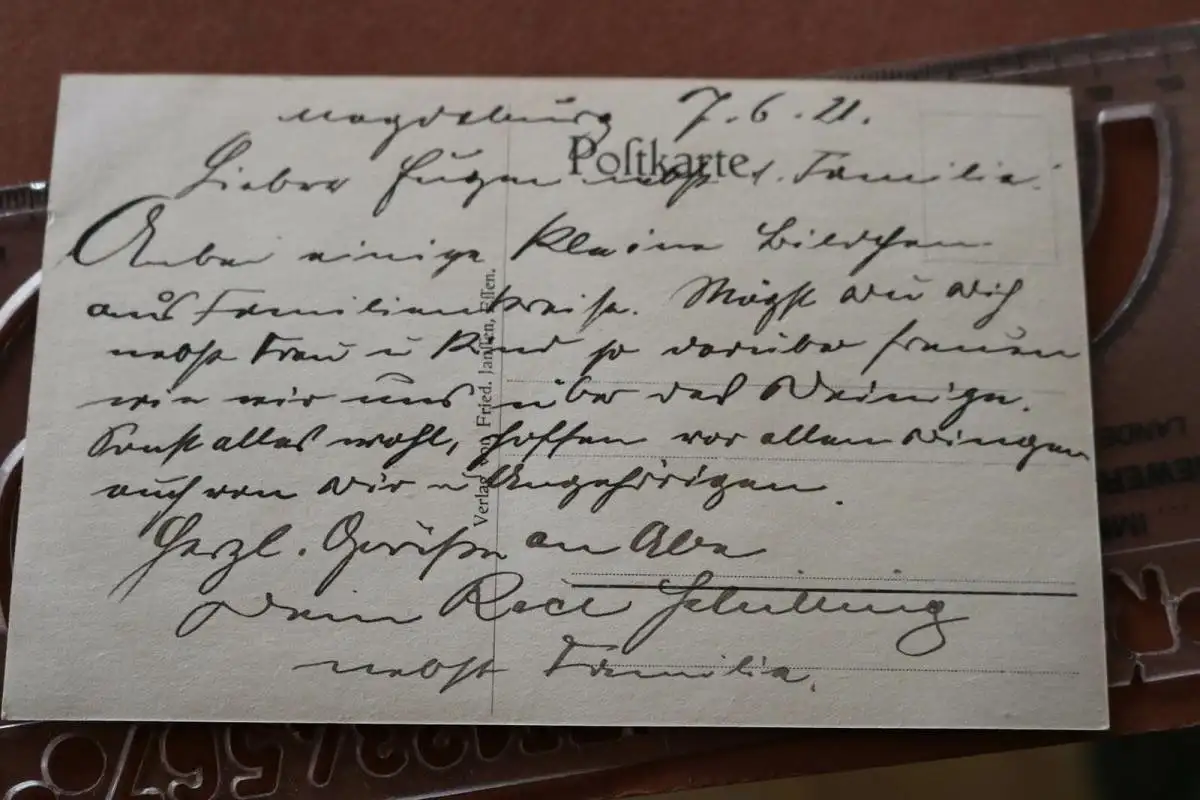 Magdeburg 7.6.21.
Postkarte
Lieber Eugen nebst l. Familie!
Anbei einige kleine Bildchen
aus Familienkreise. Mögst Du Dich
nebst Frau u Kind so darüber freuen
wie wir uns über das Deinige.
Sonst alles wohl, hoffen vor allen Dingen
auch von Dir u Angehörigen.
Herzl. Grüße an Alle
Dein Schilling
nebst Familie.
Verlag von Fried. Janssen, Essen.